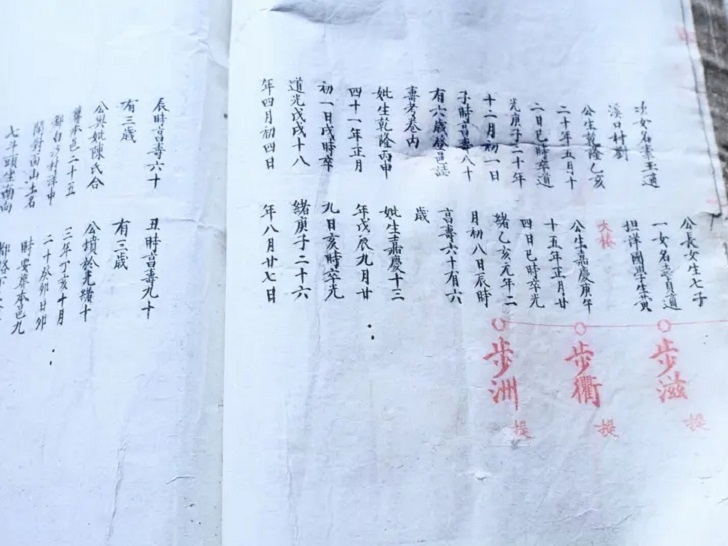 次女名素玉適
溪口村劉
公生乾隆乙亥
二十年五月十
二日巳時卒道
光庚子二十年
十二月初一日
子時言壽八十
有六歲
邑誌
壽考卷內
妣生乾隆丙申
四十一年正月
初一日戌時卒
道光戊戌十八
年四月初四
公長女生七子
一女名壽貞適
担洋國學生黃
公生嘉慶庚午
十五年正月廿
四日巳時卒光
緒乙亥元年二
月初八日辰時
言壽六十有六
歲
妣生嘉慶十三
年戊辰九月廿
九日亥時卒光
緒庚子二十六
年八月廿七日
步滋
提
步衢
提
步洲
提
辰時言壽六十
有三歲
公與妣陳氏合
葬本邑二十五
開對面山土名
七斗頭坐南向
丑時言壽九十
有三歲
公墳於光緒十
三年丁亥十月
二十
卯日卯
時安葬本邑九